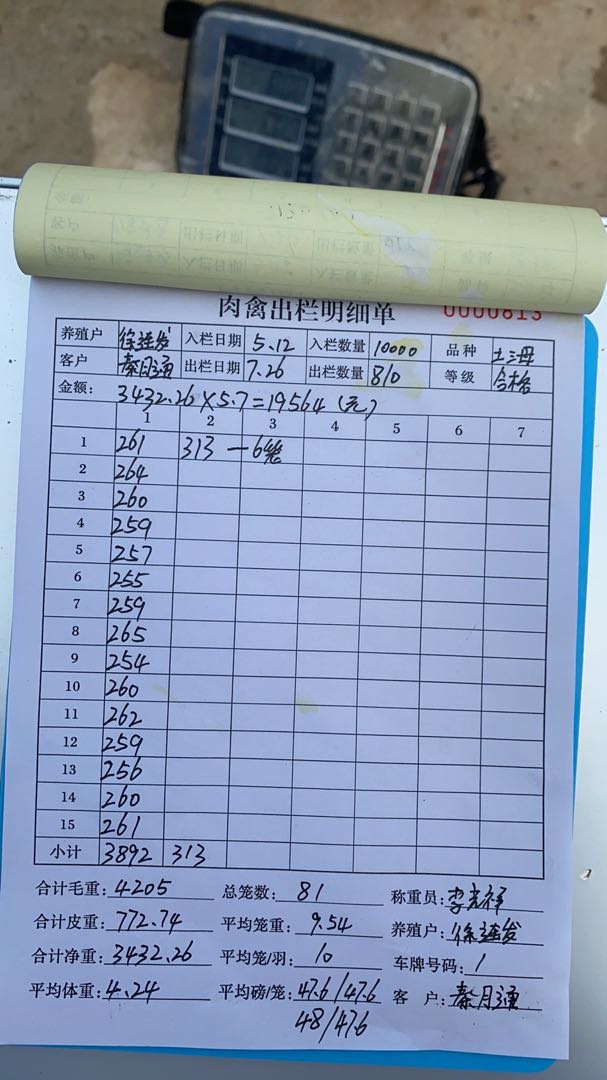 肉禽出栏明细单 0000813
养殖户 徐连发 入栏日期 5.12 入栏数量 10000 品种 土2母
客户 秦月通 出栏日期 7.26 出栏数量 810 等级 合格
金额: 3432.26×5.7=19564(元)
1 2 3 4 5 6 7
1 261 313 —6笼
2 264
3 260
4 259
5 257
6 255
7 259
8 265
9 254
10 260
11 262
12 259
13 256
14 260
15 261
小计 3892 313
合计毛重: 4205 总笼数: 81 称重员: 李光祥
合计皮重: 772.74 平均笼重: 9.54 养殖户: 徐连发
合计净重: 3432.26 平均笼/羽: 10 车牌号码: 1
平均体重: 4.24 平均磅/笼: 47.6/47.6 客 户: 秦月通
48/47.6